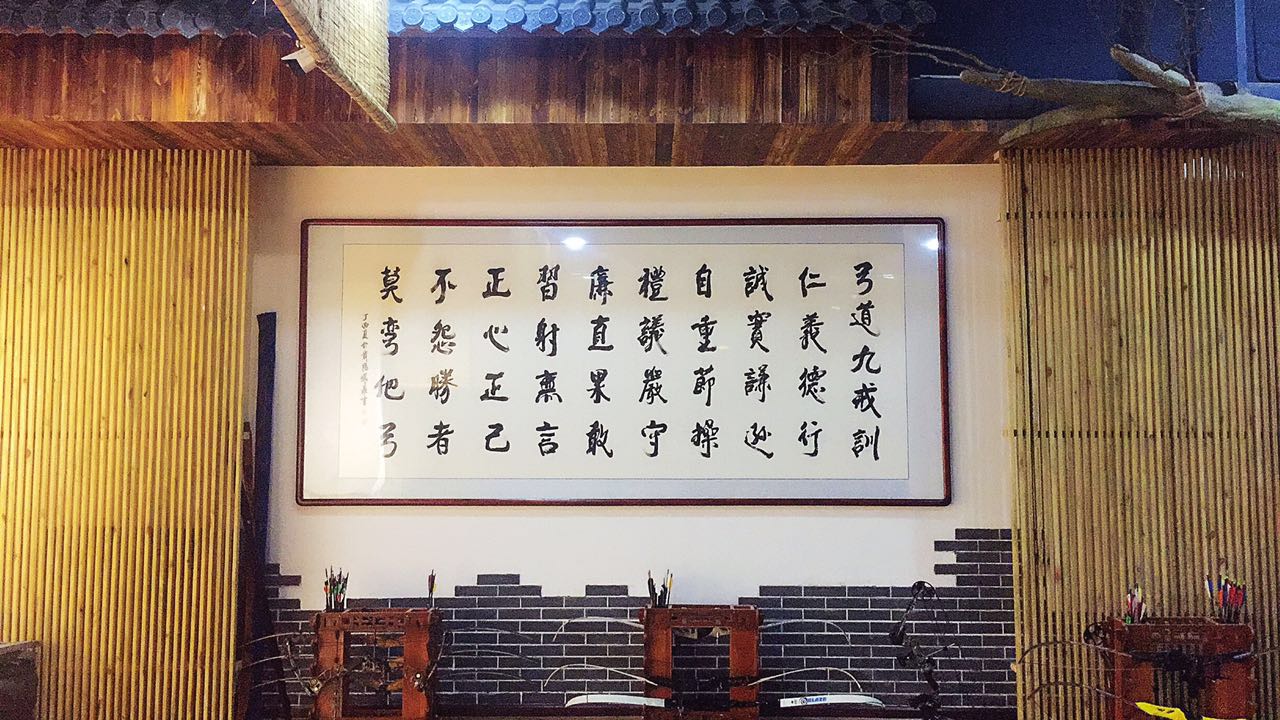 弓道九戒訓
仁義德行
誠實謙遜
自重節操
禮議嚴守
廉直果敢
習射無言
正心正己
不怨勝者
莫彎他弓
丁酉夏